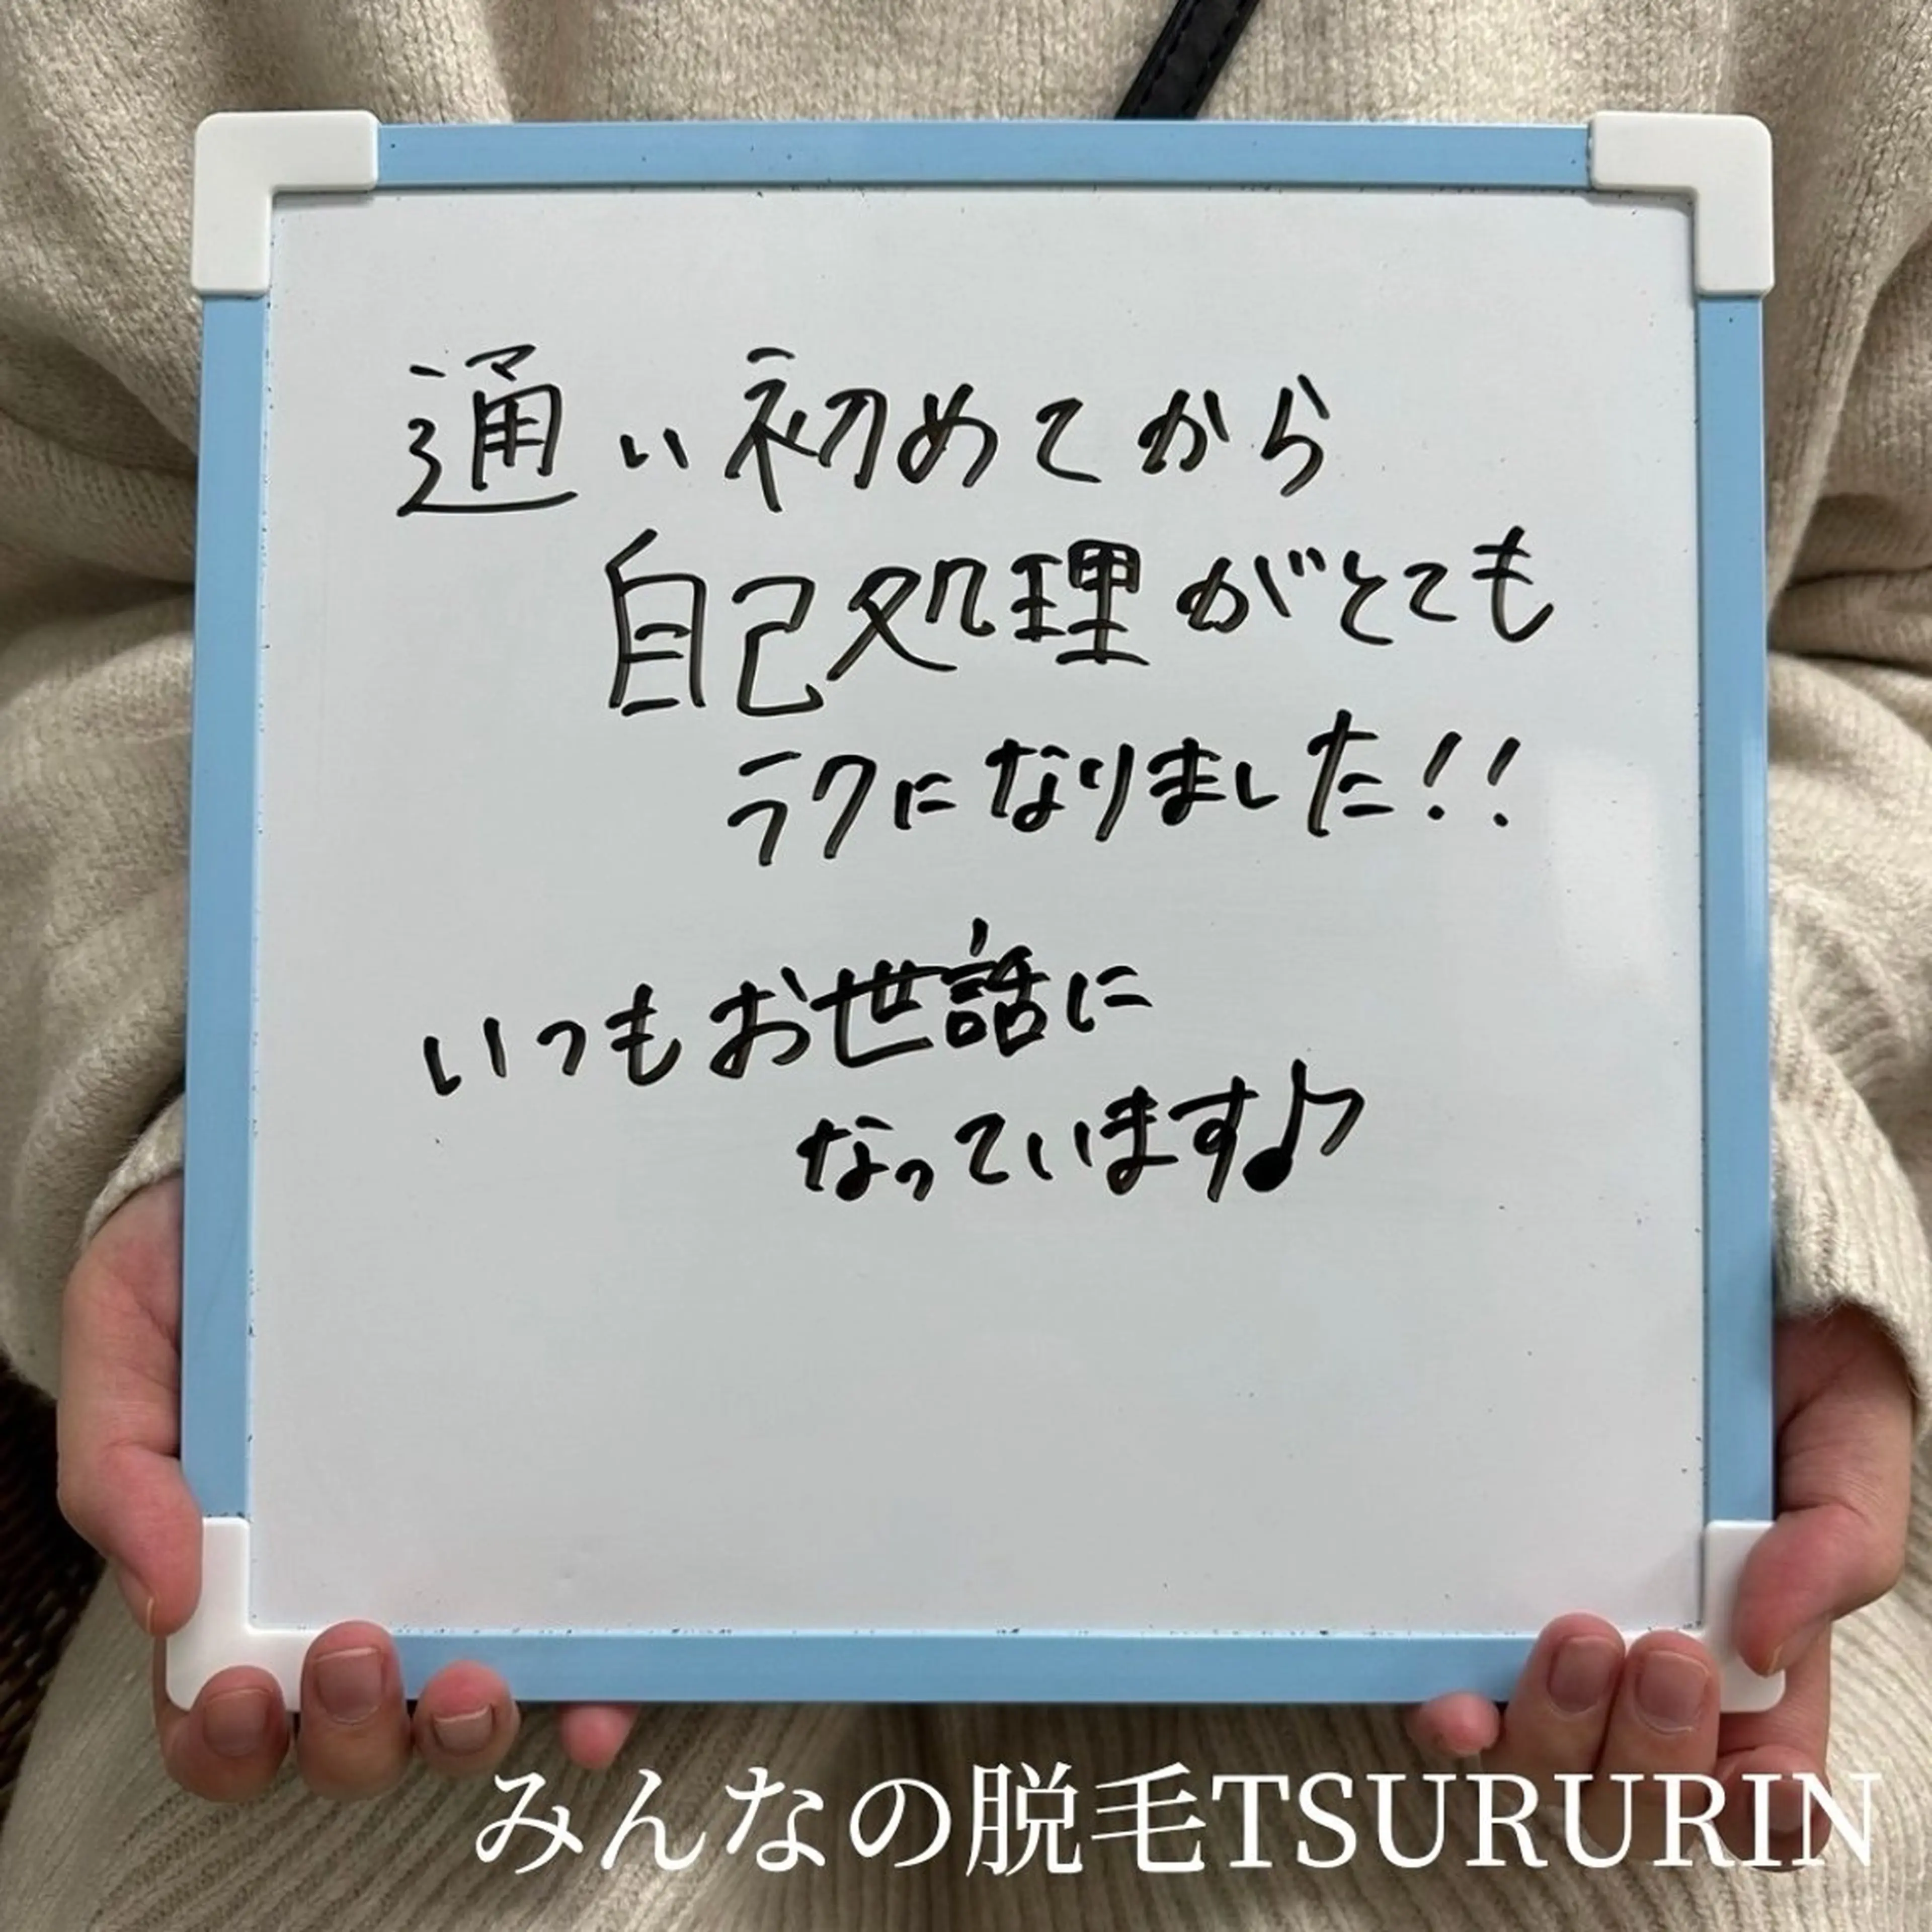 通い初めてから
自己処理がとても
ラクになりました!!
いつもお世話に
なっています♪
みんなの脱毛TSURURIN